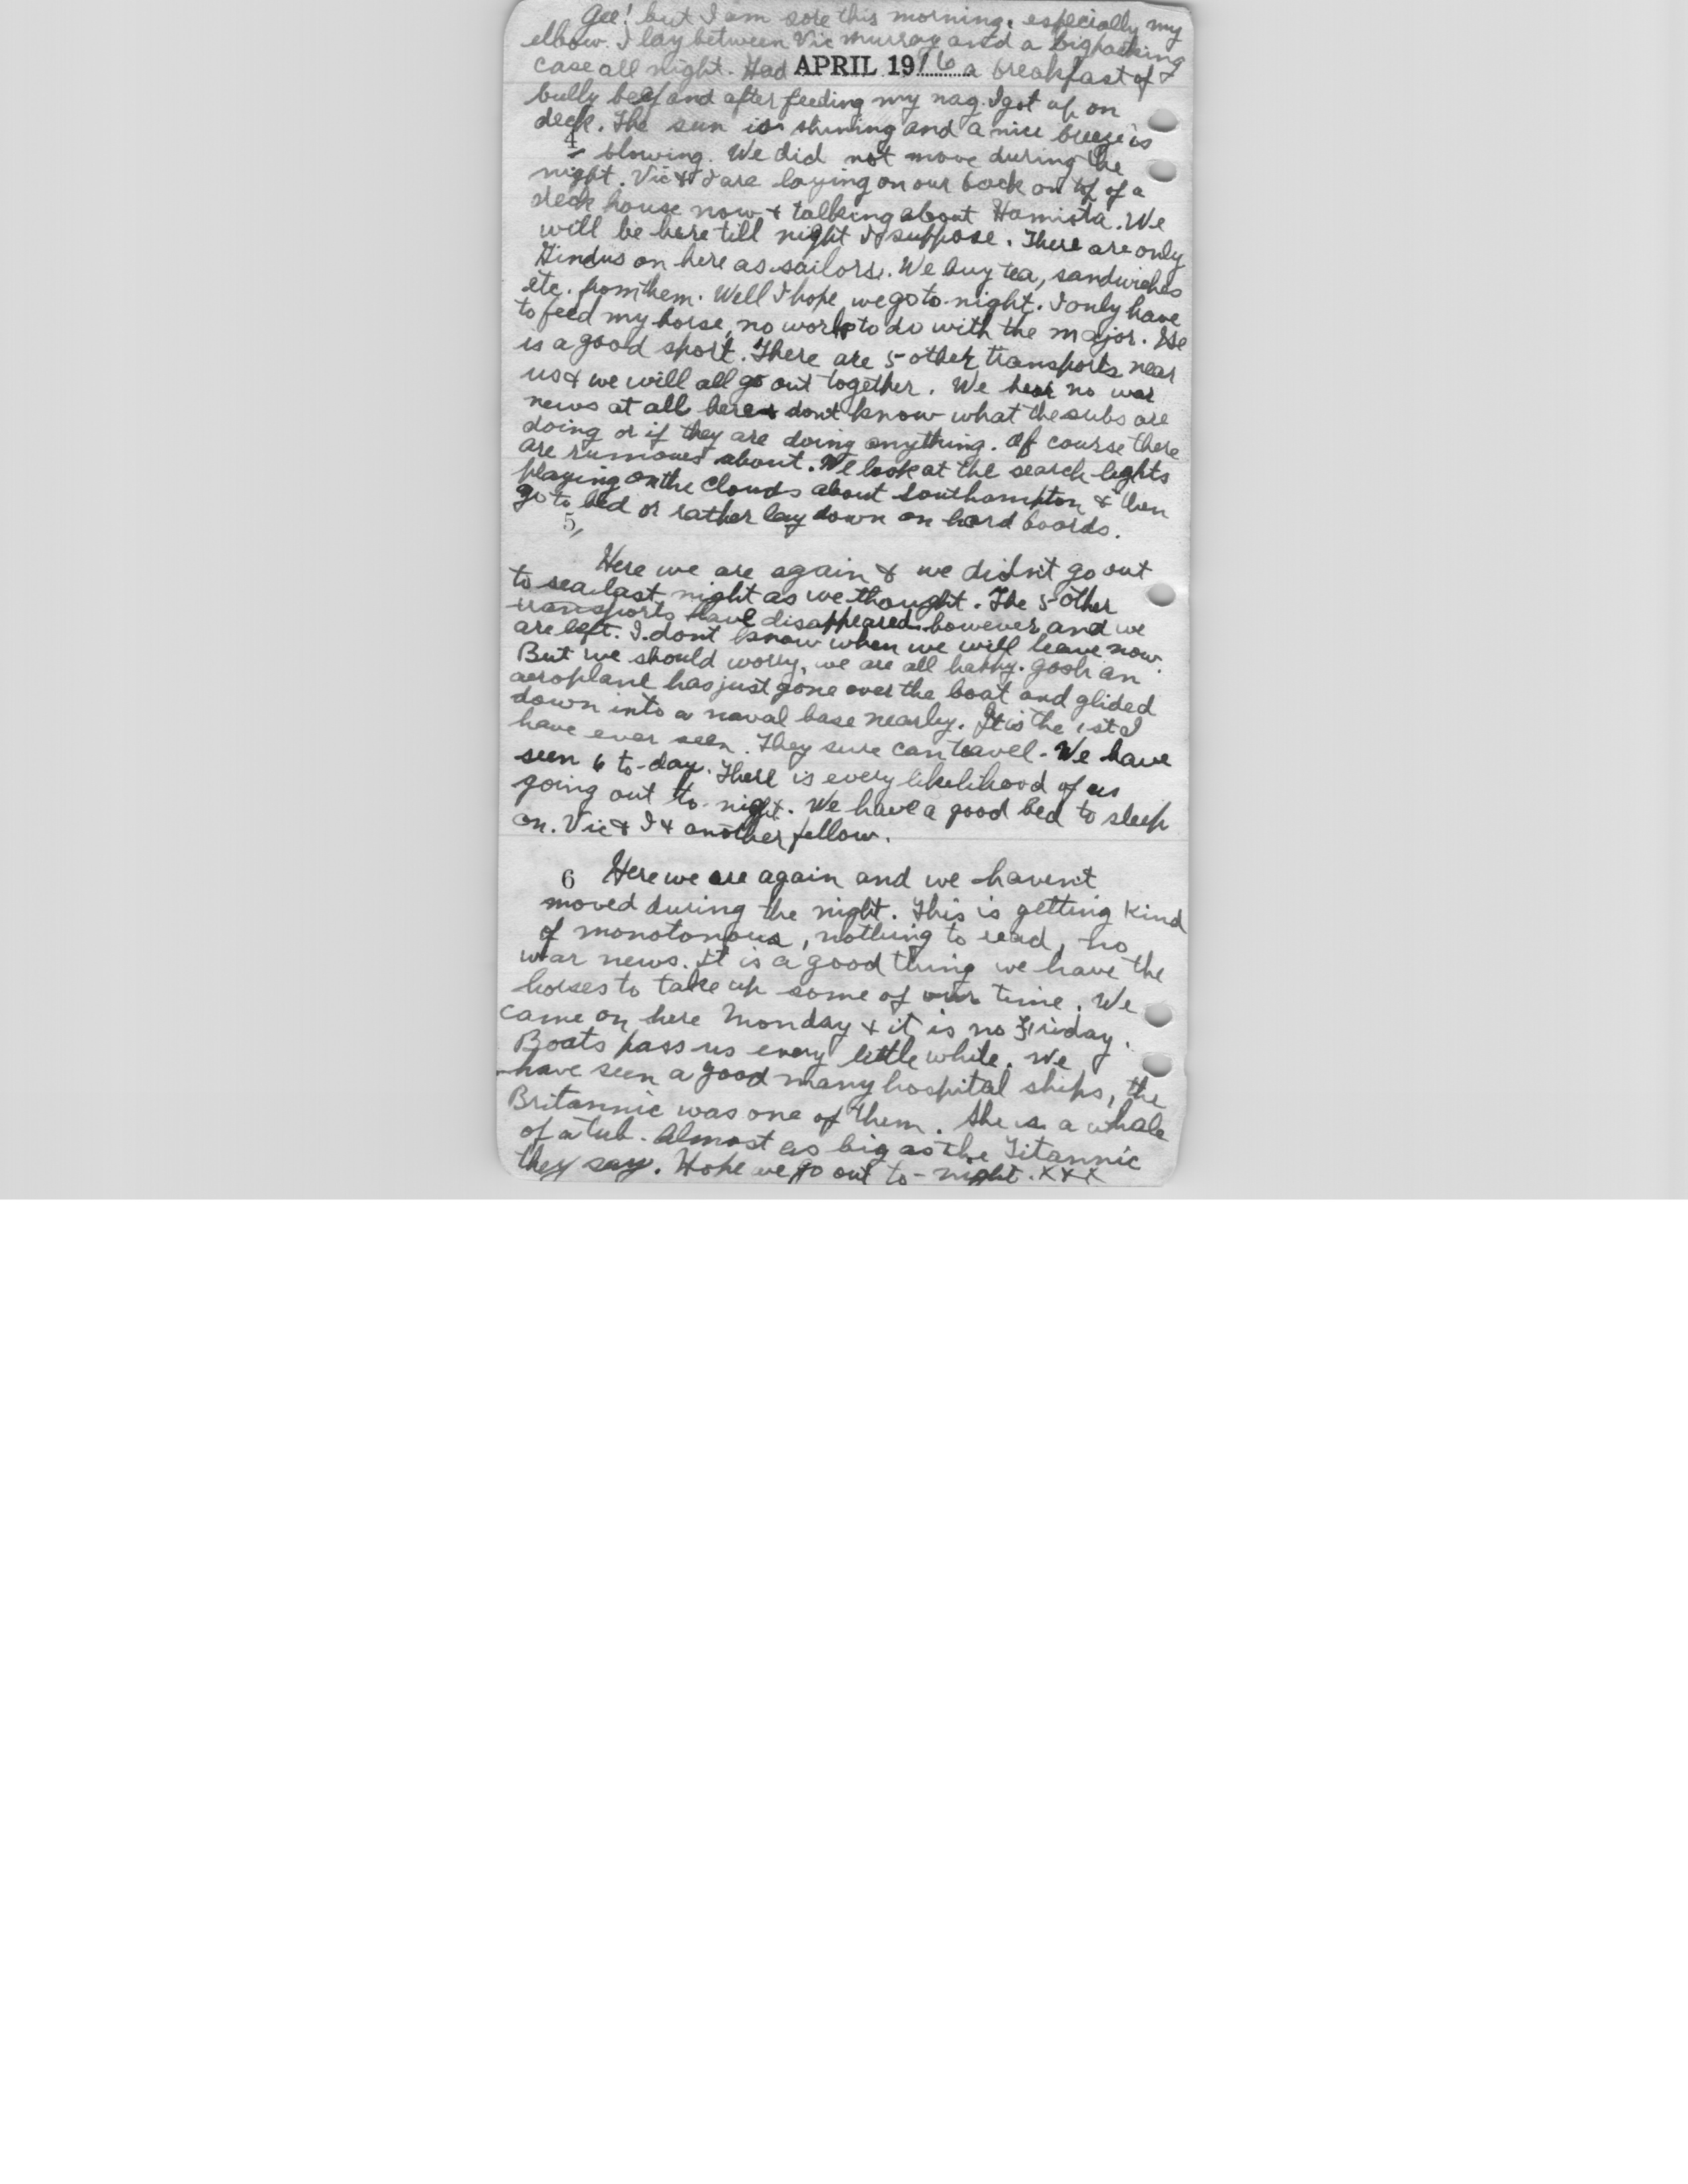 Gee! but I am sore this morning, especially my
elbow. I lay between Vic Murray and a big packing
case all night. Had APRIL 1916 a breakfast of
bully beef and after feeding my nag I got up on
deck. The sun is shining and a nice breeze is
4
blowing. We did not move during the
night. Vic & I are laying on our back on top of a
deck house now & talking about Hamiota. We
will be here till night I suppose. There are only
Hindus on here as sailors. We buy tea, sandwiches
etc. from them. Well I hope we go to-night. I only have
to feed my horse, no work to do with the major. He
is a good sport. There are 5 other transports near
us & we will all go out together. We hear no war
news at all here & dont know what the subs are
doing or if they are doing anything. Of course there
are rumours about. We look at the search lights
playing on the clouds about Southampton & then
go to bed or rather lay down on hard boards.
5
Here we are again & we didn't go out
to sea last night as we thought. The 5 other
transports have disappeared however and we
are left. I dont know when we will leave now.
But we should worry, we are all happy. Gosh an
aeroplane has just gone over the boat and glided
down into a naval base nearby. It is the 1st I
have ever seen. They sure can travel. We have
seen 6 to-day. There is every likelihood of us
going out to-night. We have a good bed to sleep
on. Vic & I & another fellow.
6 Here we are again and we haven't
moved during the night. This is getting kind
of monotonous, nothing to read, no
war news. It is a good thing we have the
horses to take up some of our time. We
came on here Monday & it is no Friday.
Boats pass us every little while. We
have seen a good many hospital ships, the
Britannic was one of them. She is a whale
of a tub. Almost as big as the Titannic
they say. Hope we go out to-night. xxx